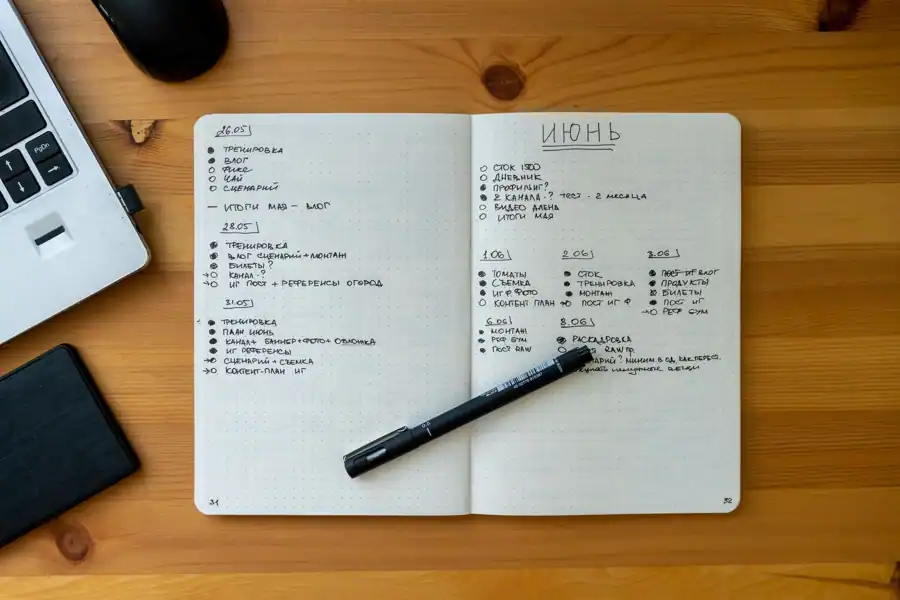 PgDn
26.05
ТРЕНИРОВКА
ВЛОГ
ЧАЙ
СЦЕНАРИЙ
— ИТОГИ МАЯ — ВЛОГ
28.05
ТРЕНИРОВКА
ВЛОГ СЦЕНАРИЙ+МОНТАЖ
БИЛЕТЫ?
→ КАНАЛ-?
→ ИГ ПОСТ + РЕФЕРЕНСЫ ОГОРОД
31.05
ТРЕНИРОВКА
ПЛАН ИЮНЬ
КАНАЛ+ БАННЕР+ФОТО+ОБЛОЖКА
ИГ РЕФЕРЕНСЫ
→ СЦЕНАРИЙ+СЪЕМКА
→ КОНТЕНТ-ПЛАН ИГ
31
ИЮНЬ
СТОК 1500
ДНЕВНИК
ПРОФИЛИНГ?
2 КАНАЛА-? ТЕСТ - 2 МЕСЯЦА
ВИДЕО
ИТОГИ МАЯ
1.06
ТОМАТЫ
СЪЕМКА
ИГ Ф ФОТО
КОНТЕНТ ПЛАН
2.06
СТОК
ТРЕНИРОВКА
МОНТАЖ
→ ПОСТ ИГ Ф
3.06
ПОСТ ИГ ВЛОГ
ПРОДУКТЫ
БИЛЕТЫ
ПОСТ ИГ
→ РЕФ БУМ
6.06
МОНТАЖ
РЕФ БУМ
ПОСТ RAW
8.06
РАСКАДРОВКА
RAW
МИНИМ.
КАК ПЕРЕСТ.
ненужные вещи
32
0.5